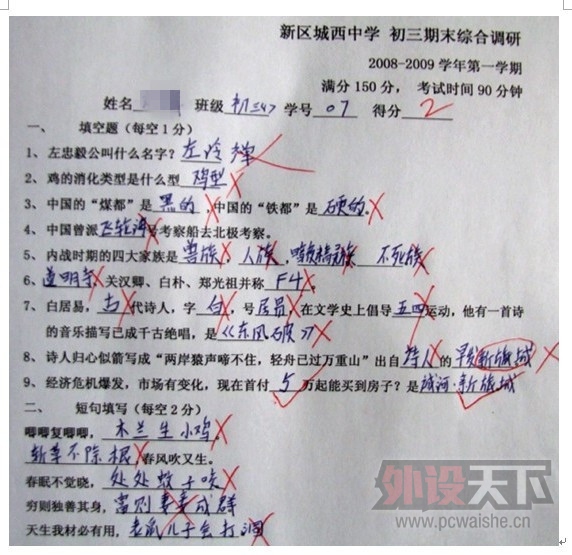 新区城西中学 初三期末综合调研
2008-2009学年第一学期
满分150分， 考试时间90分钟
姓名 班级 初三<4> 学号 07 得分 2
一、 填空题（每空1分）
1、左忠毅公叫什么名字？左冷禅
2、鸡的消化类型是什么型 鸡型
3、中国的“煤都”是 黑的 ,中国的“铁都”是 硬的。
4、中国曾派 飞轮海 号考察船去北极考察。
5、内战时期的四大家族是 兽族、人族、暗夜精灵族 不死族
6、道明寺、关汉卿、白朴、郑光祖并称 F4。
7、白居易，古代诗人，字 白，号 居易，在文学史上倡导 五四 运动，他有一首诗
的音乐描写已成千古绝唱，是《东风破》
8、诗人归心似箭写成“两岸猿声啼不住，轻舟已过万重山”出自 诗人 的 早发新旅城
9、经济危机爆发，市场有变化，现在首付 5 万起能买到房子？是 城河·新旅城
二、 短句填写（每空2分）
唧唧复唧唧，木兰生小鸡
斩草不除根 春风吹又生。
春眠不觉晓，处处蚊子咬
穷则独善其身，富则妻妾成群
天生我材必有用，老鼠儿子会打洞
外设天下
www.pcwaishe.cn